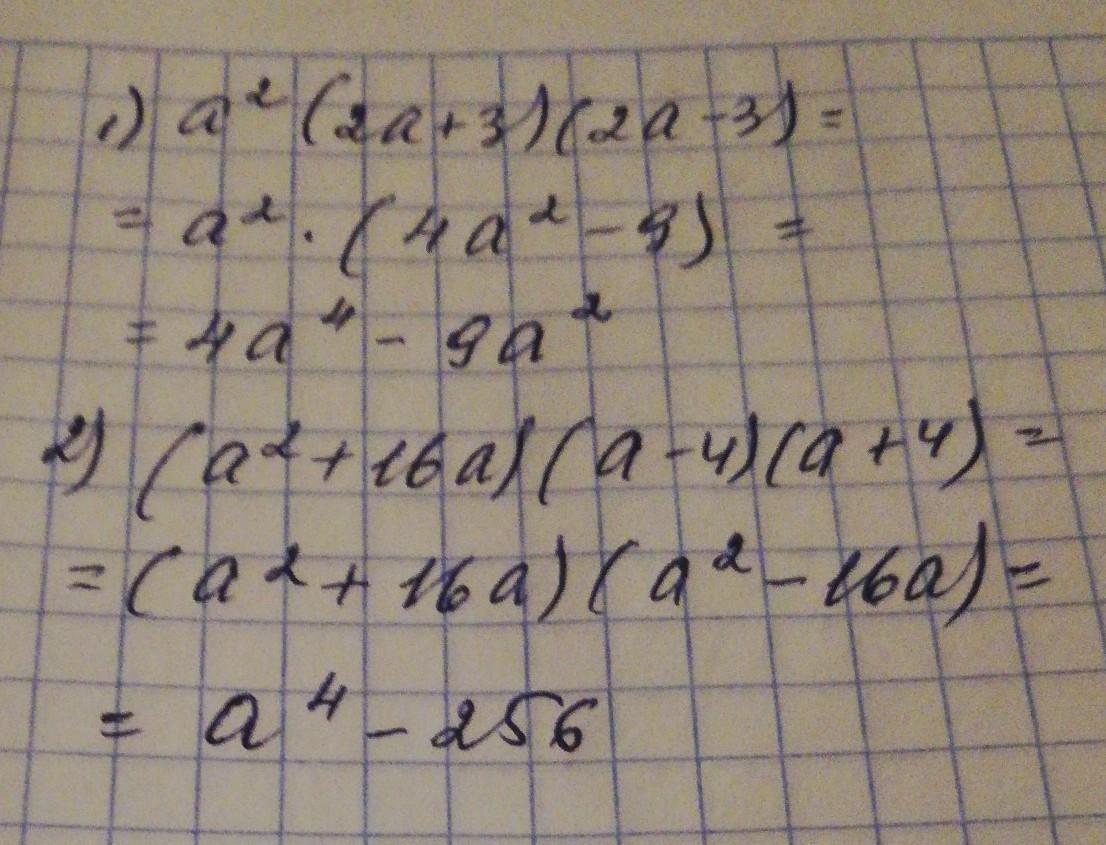 1) a² (2a+3)(2a-3) =
= a² · (4a² - 9) =
= 4a⁴ - 9a²
2) (a² + 16a)(a - 4)(a + 4) =
= (a² + 16a)(a² - 16a) =
= a⁴ - 256